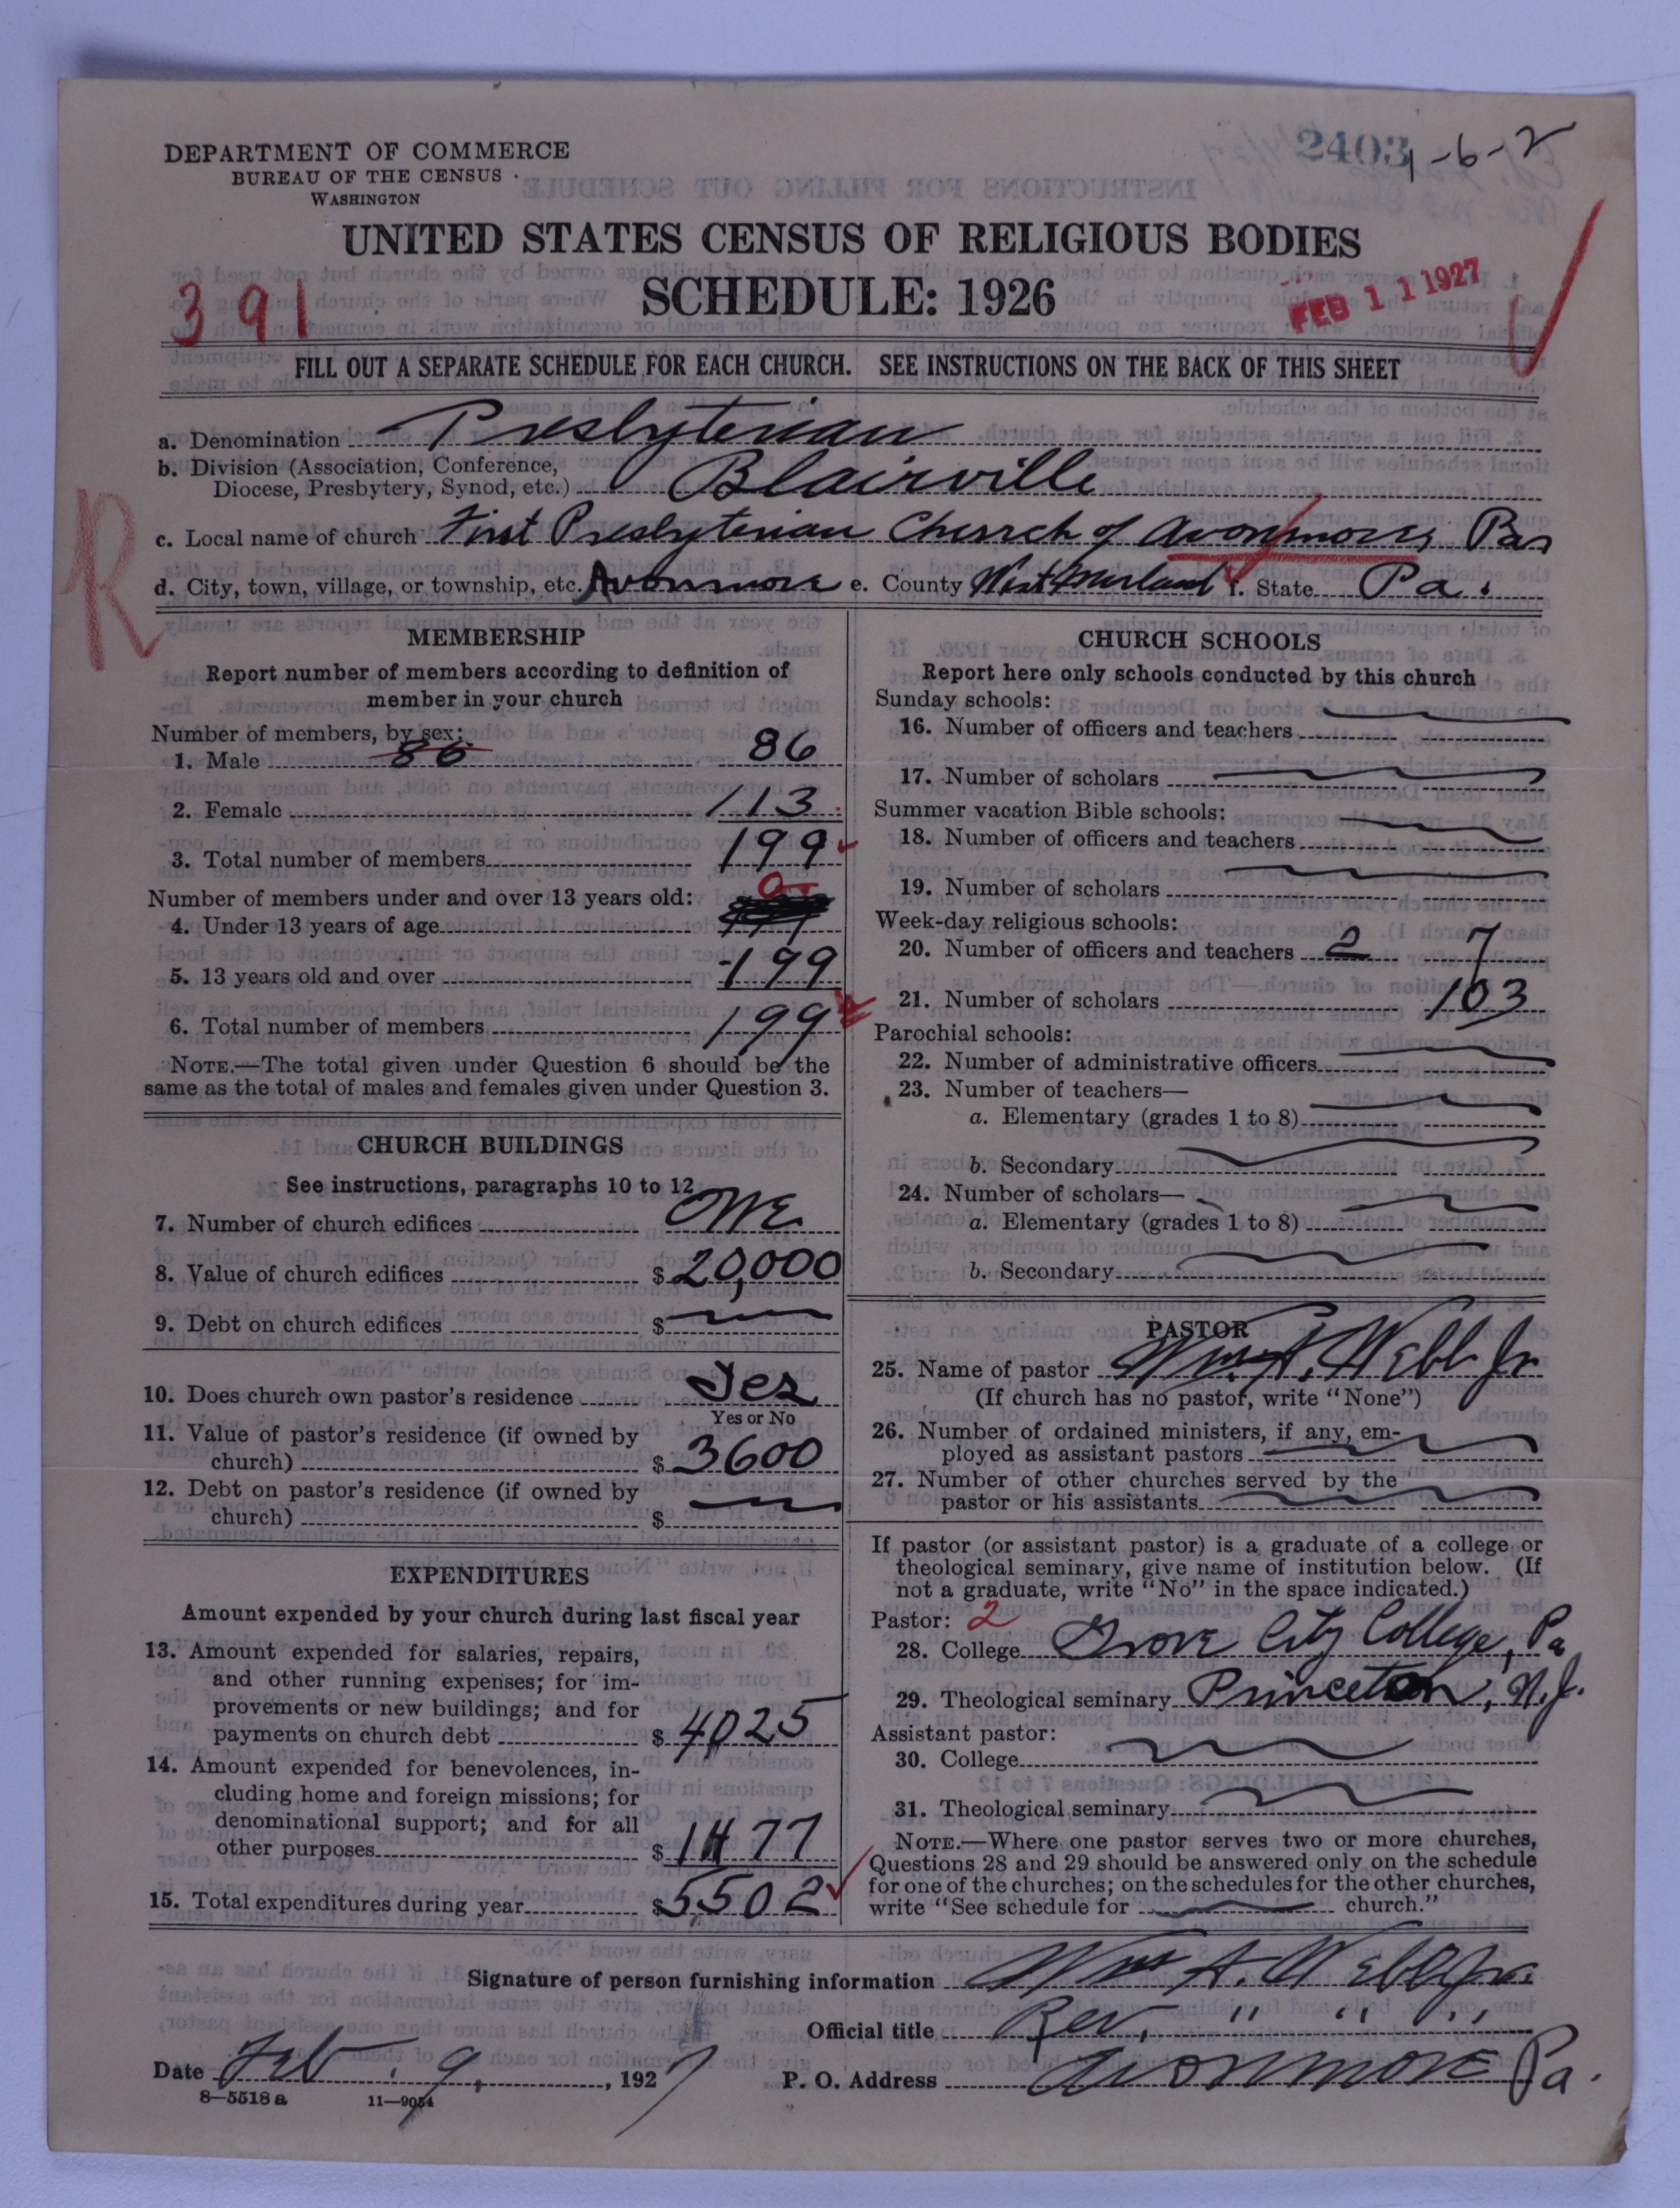 2403 1-6-2
DEPARTMENT OF COMMERCE
BUREAU OF THE CENSUS
WASHINGTON
UNITED STATES CENSUS OF RELIGIOUS BODIES
SCHEDULE: 1926
391
FEB 11 1927
FILL OUT A SEPARATE SCHEDULE FOR EACH CHURCH. SEE INSTRUCTIONS ON THE BACK OF THIS SHEET
R
a. Denomination Presbyterian
b. Division (Association, Conference,
Diocese, Presbytery, Synod, etc.) Blairville
c. Local name of church First Presbyterian Church of Avonmore, Pa
d. City, town, village, or township, etc. Avonmore e. County Westmorland f. State Pa.
MEMBERSHIP
Report number of members according to definition of
member in your church
Number of members, by sex:
1. Male 86 86
2. Female 113
3. Total number of members 199
Number of members under and over 13 years old:
4. Under 13 years of age 0
5. 13 years old and over 199
6. Total number of members 199
NOTE.—The total given under Question 6 should be the
same as the total of males and females given under Question 3.
CHURCH BUILDINGS
See instructions, paragraphs 10 to 12
7. Number of church edifices one
8. Value of church edifices $20,000
9. Debt on church edifices $
10. Does church own pastor's residence Yes
Yes or No
11. Value of pastor's residence (if owned by
church) $3600
12. Debt on pastor's residence (if owned by
church) $
EXPENDITURES
Amount expended by your church during last fiscal year
13. Amount expended for salaries, repairs,
and other running expenses; for im-
provements or new buildings; and for
payments on church debt $4025
14. Amount expended for benevolences, in-
cluding home and foreign missions; for
denominational support; and for all
other purposes $1477
15. Total expenditures during year $5502
CHURCH SCHOOLS
Report here only schools conducted by this church
Sunday schools:
16. Number of officers and teachers
17. Number of scholars
Summer vacation Bible schools:
18. Number of officers and teachers
19. Number of scholars
Week-day religious schools:
20. Number of officers and teachers 2 7
21. Number of scholars 103
Parochial schools:
22. Number of administrative officers
23. Number of teachers—
a. Elementary (grades 1 to 8)
b. Secondary
24. Number of scholars—
a. Elementary (grades 1 to 8)
b. Secondary
PASTOR
25. Name of pastor Wm. A. Webb Jr
(If church has no pastor, write "None")
26. Number of ordained ministers, if any, em-
ployed as assistant pastors
27. Number of other churches served by the
pastor or his assistants
If pastor (or assistant pastor) is a graduate of a college or
theological seminary, give name of institution below. (If
not a graduate, write "No" in the space indicated.)
Pastor: 2
28. College Grove City College, Pa
29. Theological seminary Princeton, N.J.
Assistant pastor:
30. College
31. Theological seminary
NOTE.—Where one pastor serves two or more churches,
Questions 28 and 29 should be answered only on the schedule
for one of the churches; on the schedules for the other churches,
write "See schedule for church."
Signature of person furnishing information Wm A. Webb Jr.
Official title Rev. " " "
Date Feb. 9, 1927 P. O. Address Avonmore Pa.
8—5518 a 11—9054